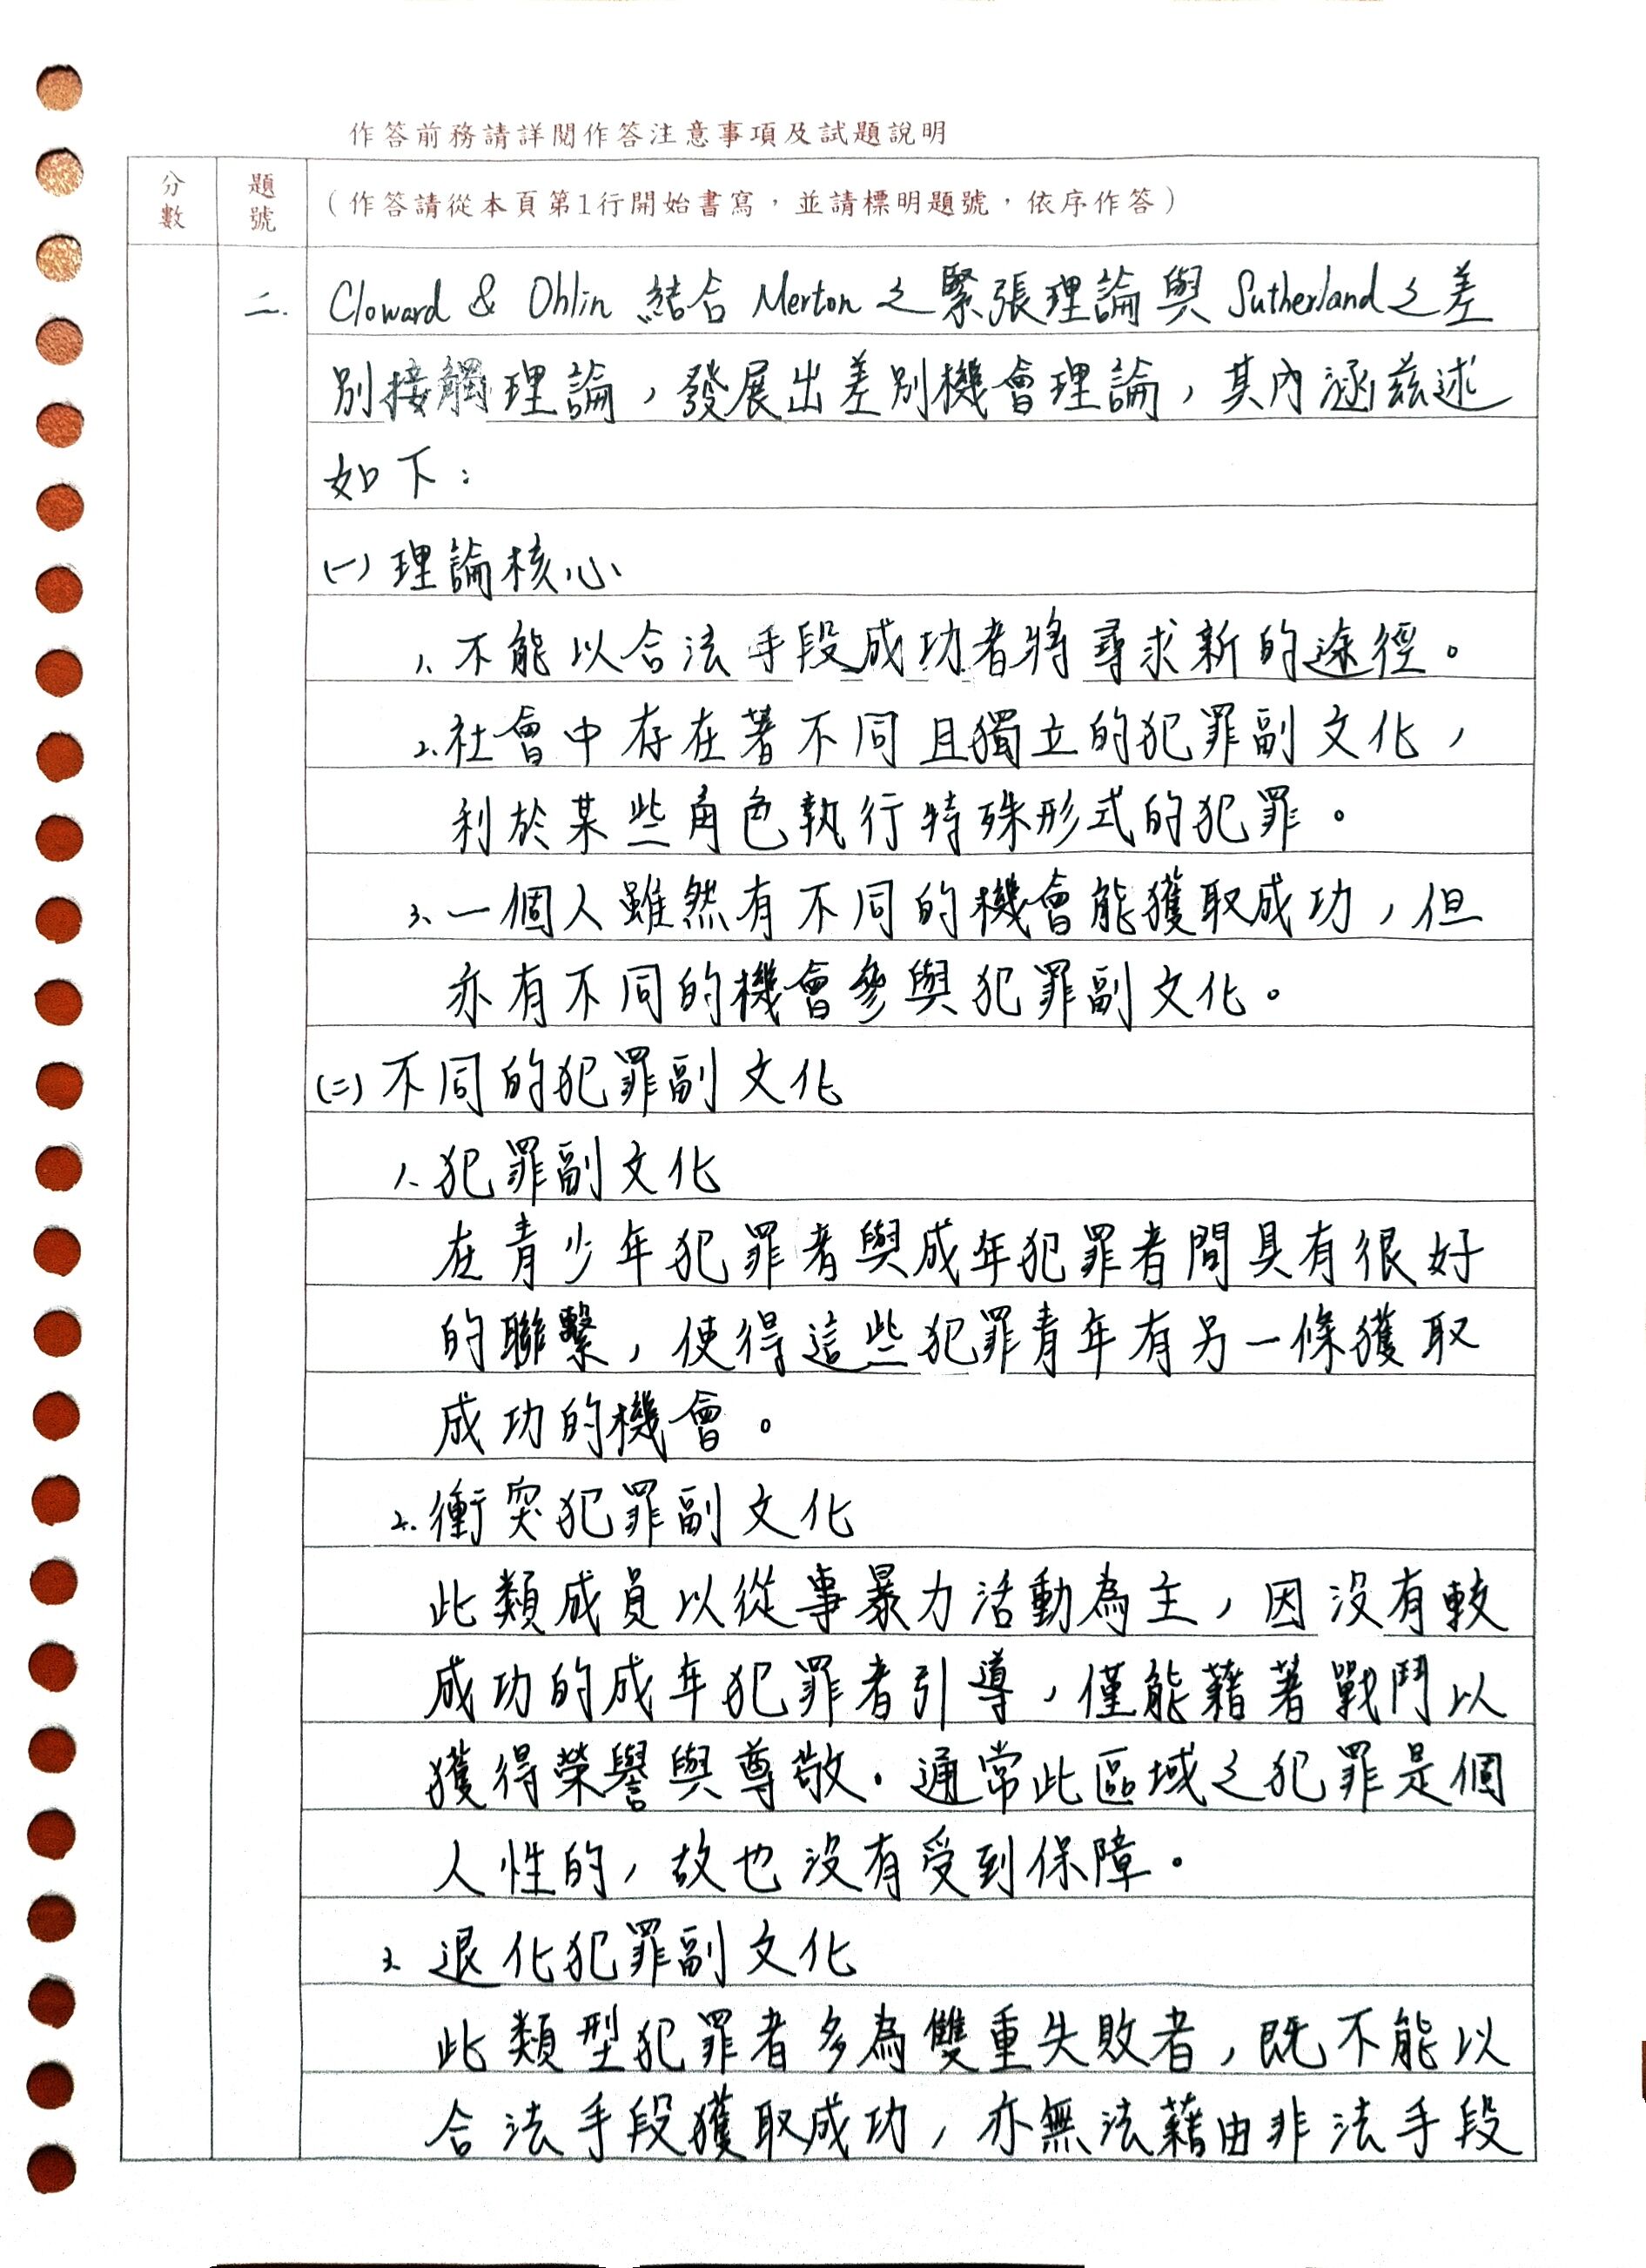 作答前務請詳閱作答注意事項及試題說明
分數
題號
（作答請從本頁第1行開始書寫，並請標明題號，依序作答）
二. Cloward & Ohlin 結合 Merton 之緊張理論與 Sutherland 之差
別接觸理論，發展出差別機會理論，其內涵茲述
如下：
(一) 理論核心
1. 不能以合法手段成功者將尋求新的途徑。
2. 社會中存在著不同且獨立的犯罪副文化，
利於某些角色執行特殊形式的犯罪。
3. 一個人雖然有不同的機會能獲取成功，但
亦有不同的機會參與犯罪副文化。
(二) 不同的犯罪副文化
1. 犯罪副文化
在青少年犯罪者與成年犯罪者間具有很好
的聯繫，使得這些犯罪青年有另一條獲取
成功的機會。
2. 衝突犯罪副文化
此類成員以從事暴力活動為主，因沒有較
成功的成年犯罪者引導，僅能藉著戰鬥以
獲得榮譽與尊敬。通常此區域之犯罪是個
人性的，故也沒有受到保障。
3. 退化犯罪副文化
此類型犯罪者多為雙重失敗者，既不能以
合法手段獲取成功，亦無法藉由非法手段